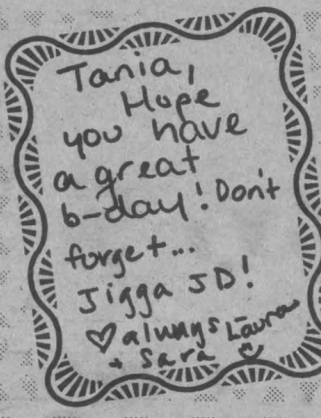 Tania,
Hope
you have
a great
b-day! Don't
forget...
Jigga JD!
♡ always Laura
+ Sara